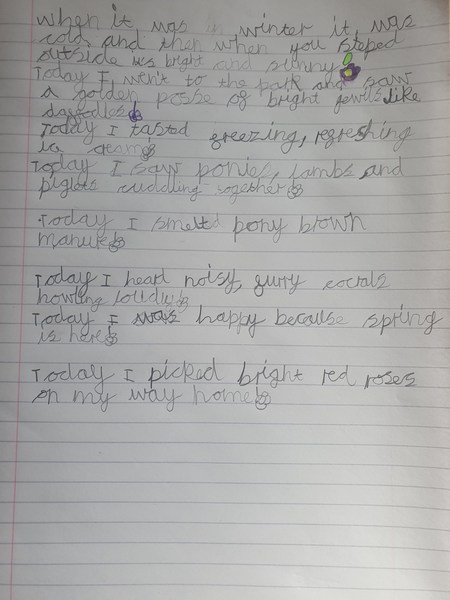 when it was in winter it was
cold and then when you steped
outside its bright and sunny
Today I went to the park and saw
a golden posse of bright jewils like
Today I tasted freezing, refreshing
ice cream
Today I saw ponies, lambs and
piglots cuddling together
Today I smelted pony brown
manure
Today I heard noisy, furry
howling loudly
Today I was happy because spring
is here
Today I picked bright red roses
on my way home